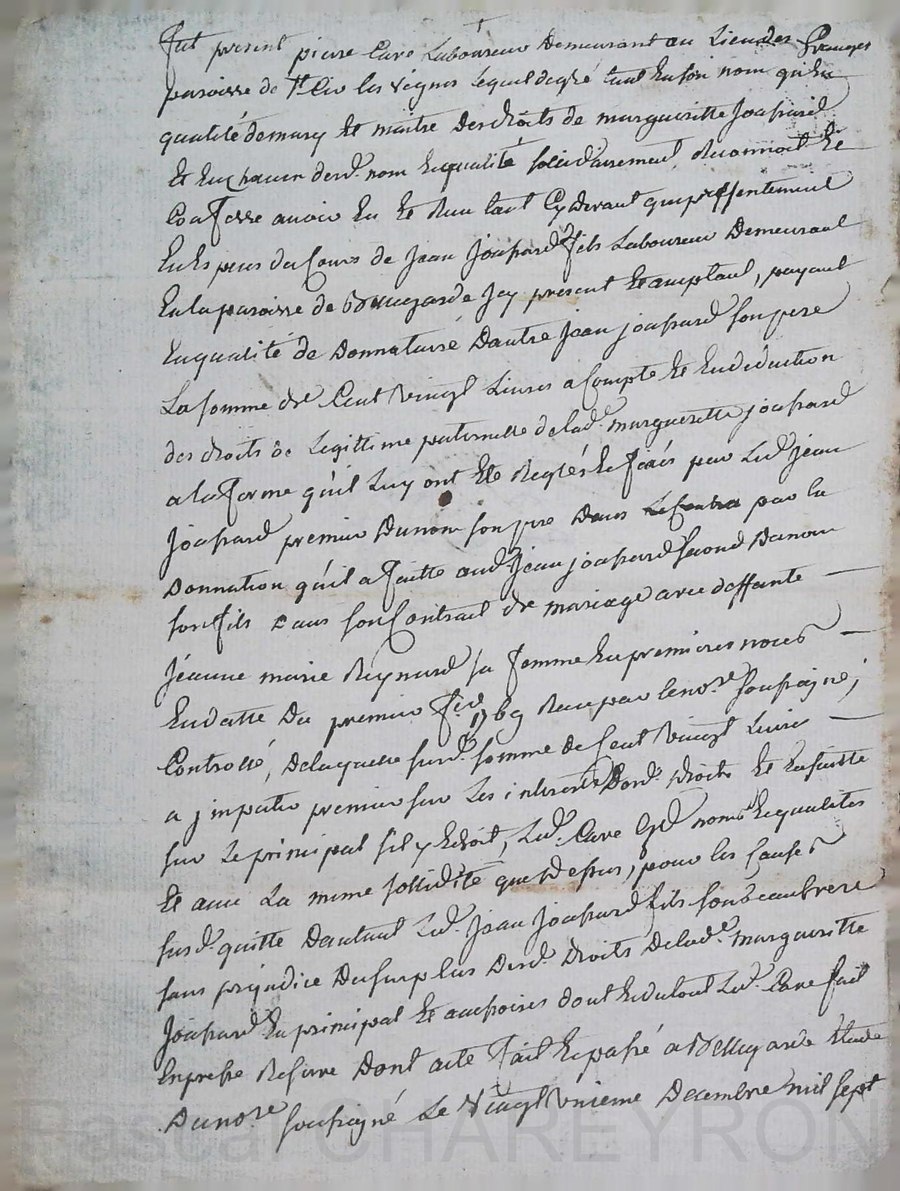 fut present pierre Cave Laboureur Demeurant au Lieu des Granges
paroisse de St Cir les vignes Lequel degré tant En son nom qu'En
qualité de mary Et maitre des droits de margueritte Joassard
Et En chacun desd. nom Et qualité solidairement, Reconnoit Et
Confesse avoir Eu Et Reçu tant Cy devant que pressentement
En Especes du Cours de Jean fils Laboureur Demeurant
En la paroisse de Bellegarde Jcy present Et acceptant, payant
En qualité de Donnataire Dautre Jean son pere
La somme de Cent vingt Livres a Compte Et En deduction
des droits de Legittime paternelle de lad. margueritte
a la forme qu'il Luy ont Eté Reglés Et fixés par Led. Jean
premier Du nom son pere Dans par la
Donnation qu'il a faitte aud. Jean second Du nom
son fils Dans son Contract de mariage avec deffunte
Jeanne marie Reynard sa femme En premieres noces
En datte Du premier 1769 Reçu par le nore soussigné,
Controllé, De laquelle susd. somme de Cent vingt Livres
a jmputer premier sur Les interests Desd. Droits Et En suitte
sur Le principal s'il y Echoit, Led. Cave Esd. noms Et qualités
Et avec La meme sollidité que Dessus, pour les Causes
susd. quitte Dautant Led. Jean fils son beaufrere
sans prejudice Du surplus Desd. Droits De lad. margueritte
En principal Et accessoires dont Du tout Led. Cave fait
Expresse Reserve Dont acte fait Et passé a Bellegarde Etude
Du nore soussigné Le vingt unieme Decembre mil sept
Pascal CHAREYRON